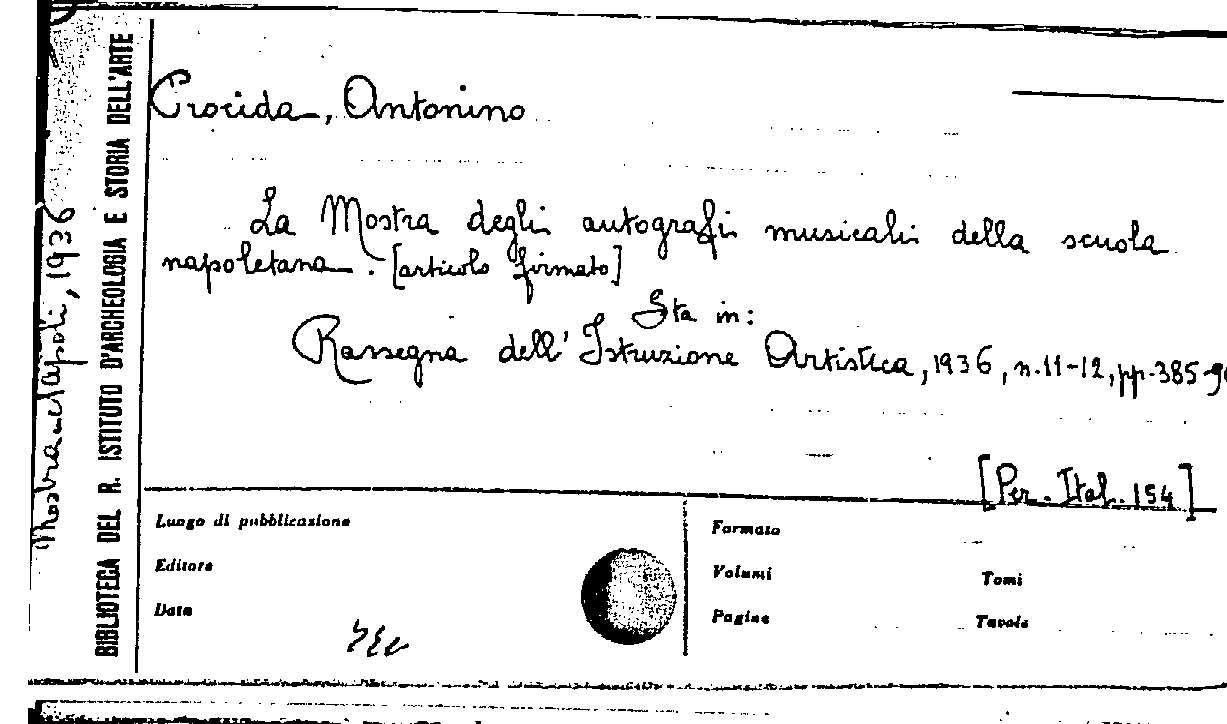 Crocida, Antonino
La Mostra degli autografi musicali della scuola
napoletana. [articolo firmato]
Sta in:
Rassegna dell'Istruzione Artistica, 1936, n.11-12, pp. 385-
[Per. Ital. 154]
Luogo di pubblicazione
Editore
Data
Formato
Volumi
Tomi
Pagine
Tavole
BIBLIOTECA DEL R. ISTITUTO D'ARCHEOLOGIA E STORIA DELL'ARTE
Mostra Napoli, 1936